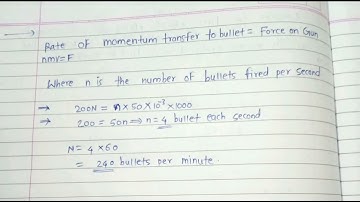 Rate of momentum transfer to bullet = Force on Gun
nmv=F
Where n is the number of bullets fired per second
→ 200N = n×50×10⁻³×1000
→ 200 = 50n ⇒ n=4 bullet each second
N= 4×60
= 240 bullets per minute.